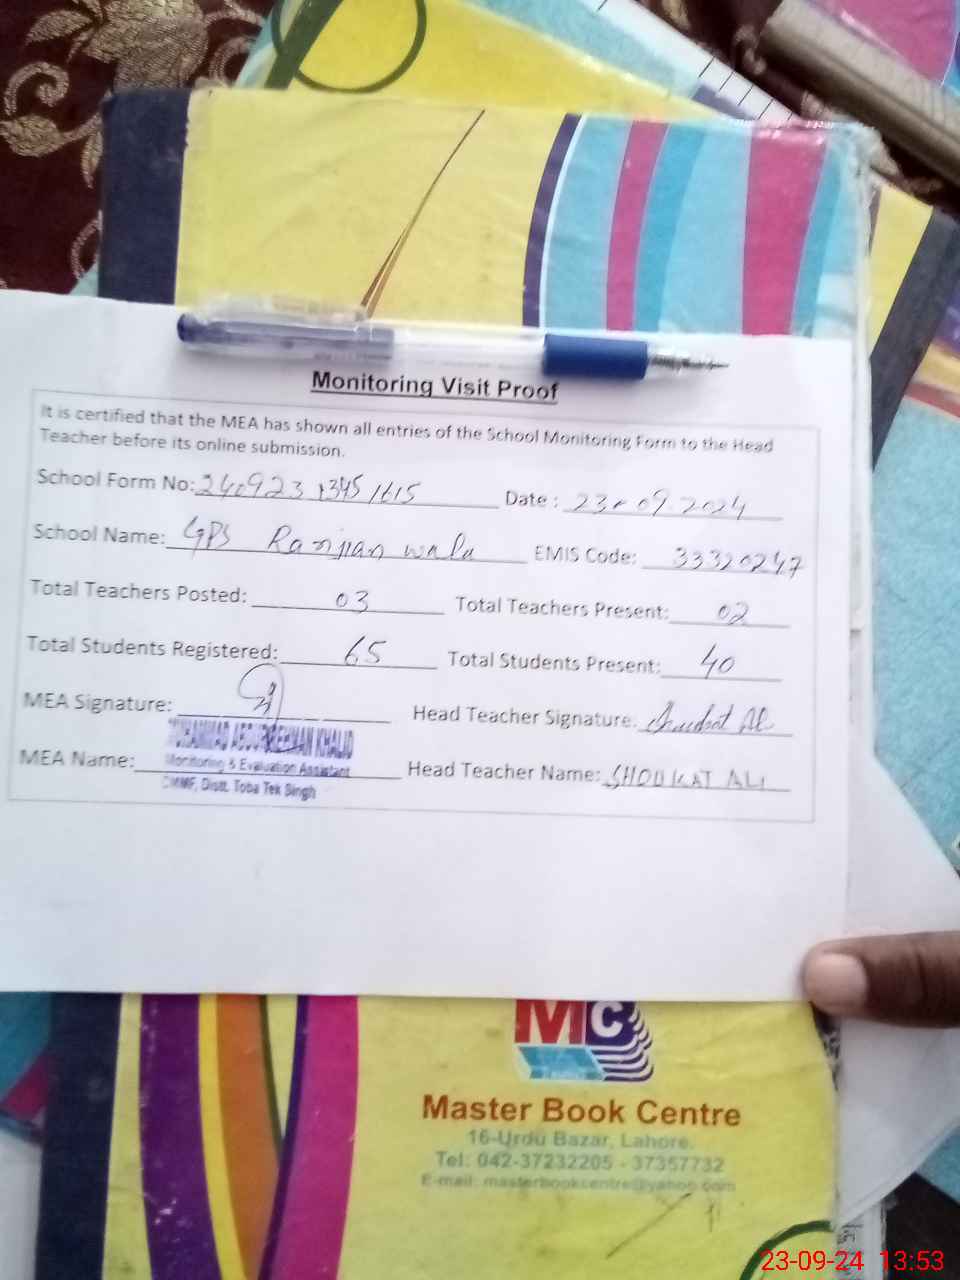 Monitoring Visit Proof
It is certified that the MEA has shown all entries of the School Monitoring Form to the Head
Teacher before its online submission.
School Form No: 240923 1345 1615 Date : 23-09-2024
School Name: GPS Ranjian wala EMIS Code: 33320247
Total Teachers Posted: 03 Total Teachers Present: 02
Total Students Registered: 65 Total Students Present: 40
MEA Signature: Head Teacher Signature: Shoukat Ali
MUHAMMAD ABDUR REHMAN KHALID
MEA Name: Monitoring & Evaluation Assistant Head Teacher Name: SHOUKAT ALI
CMMF, Distt. Toba Tek Singh
MC
Master Book Centre
16-Urdu Bazar, Lahore.
Tel: 042-37232205 - 37357732
E-mail: masterbookcentre@yahoo.com
23-09-24 13:53